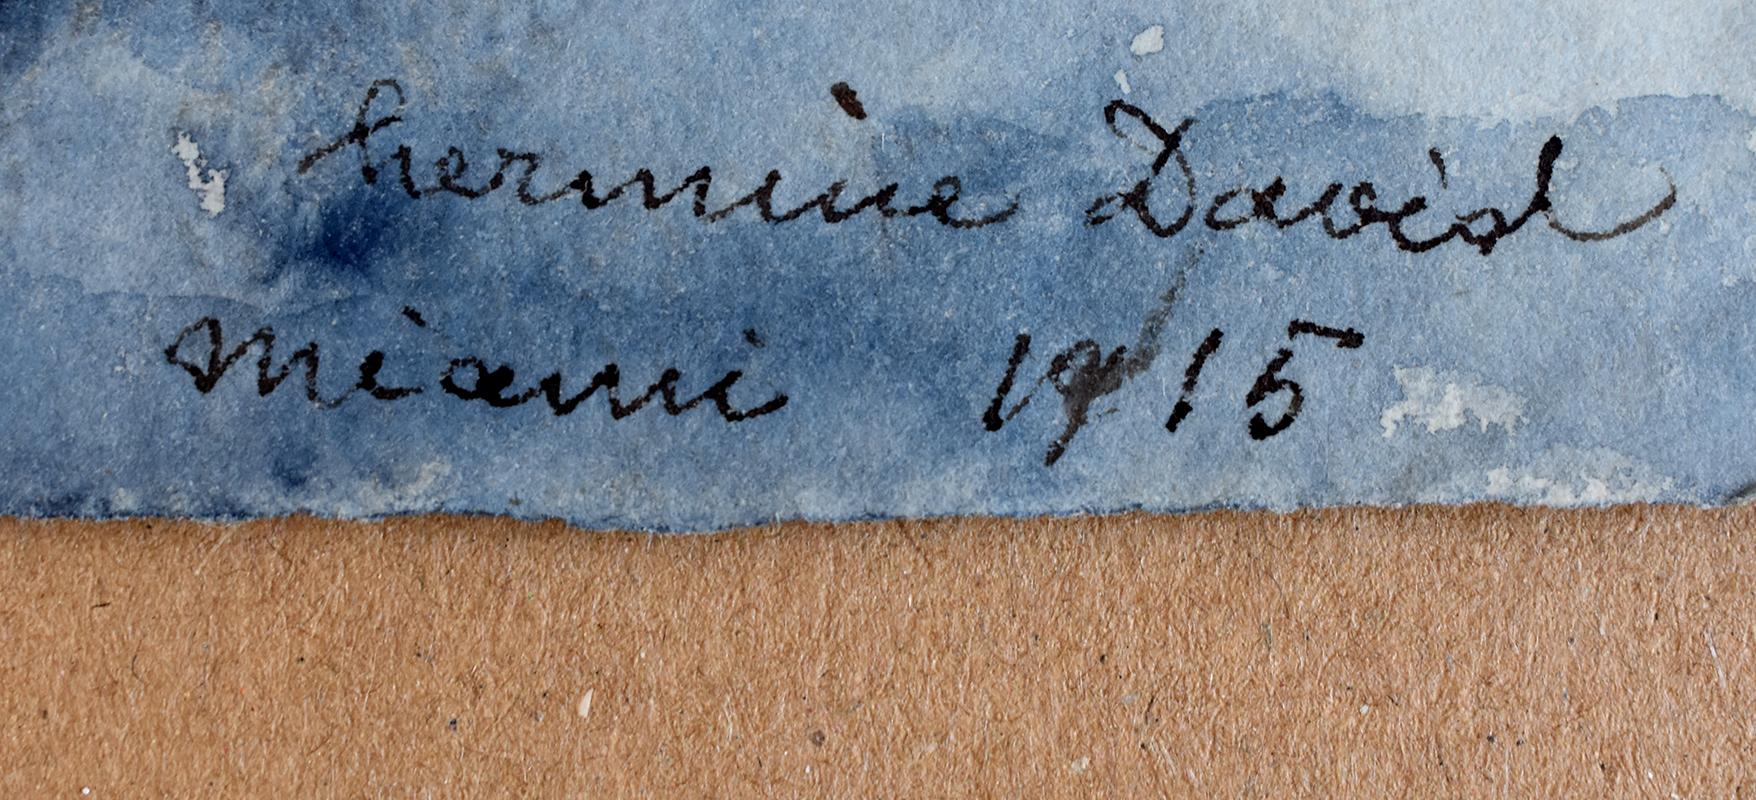 hermine David
Miami 1915